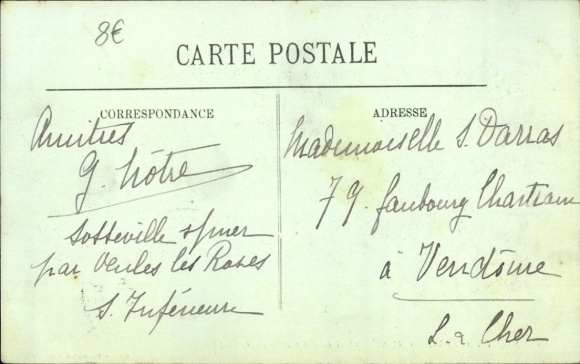 8€
CARTE POSTALE
CORRESPONDANCE
Amitiés
G. Nôtre
Sotteville s/mer
par Veules les Roses
S. Inférieure
ADRESSE
Mademoiselle S. Darras
79. faubourg Chartrain
à Vendôme
L. & Cher